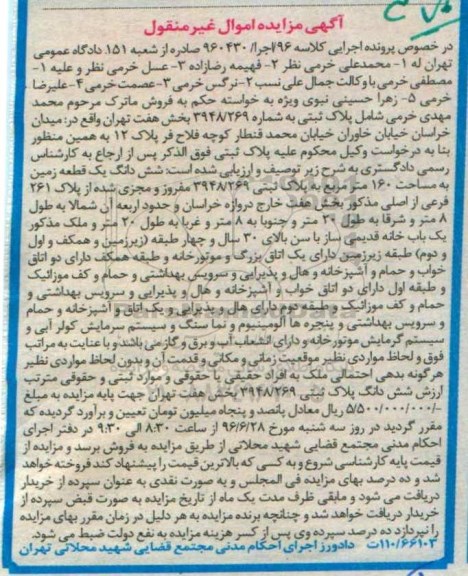 آگهی مزایده اموال غیر منقول
در خصوص پرونده اجرایی کلاسه ۹۶/اجرا/ ۹۶۰۴۳۰ صادره از شعبه ۱۵۱ دادگاه عمومی
تهران له ۱- محمدعلی خرمی نظر ۲- فهیمه رضازاده ۳- عسل خرمی نظر و علیه ۱-
مصطفی خرمی با وکالت جمال علی نسب ۲- نرگس خرمی ۳- عصمت خرمی ۴- علیرضا
خرمی ۵- زهرا حسینی نبوی ویژه به خواسته حکم به فروش ماترک مرحوم محمد
مهدی خرمی شامل پلاک ثبتی به شماره ۳۹۴۸/۲۶۹ بخش هفت تهران واقع در: میدان
خراسان خیابان خاوران خیابان محمد قنطار کوچه فلاح فر پلاک ۱۲ به همین منظور
بنا به درخواست وکیل محکوم علیه پلاک ثبتی فوق الذکر پس از ارجاع به کارشناس
رسمی دادگستری به شرح زیر توصیف و ارزیابی شده است: شش دانگ یک قطعه زمین
به مساحت ۱۶۰ متر مربع به پلاک ثبتی ۳۹۴۸/۲۶۹ مفروز و مجزی شده از پلاک ۲۶۱
فرعی از اصلی مذکور بخش هفت خارج دروازه خراسان و حدود اربعه آن شمالا به طول
۸ متر و شرقا به طول ۲۰ متر و جنوبا به ۸ متر و غربا به طول ۲۰ متر و ملک مذکور
یک باب خانه قدیمی ساز با سن بالای ۳۰ سال و چهار طبقه (زیرزمین و همکف و اول
و دوم) طبقه زیرزمین دارای یک اتاق بزرگ و موتورخانه و طبقه همکف دارای دو اتاق
خواب و حمام و آشپزخانه و هال و پذیرایی و سرویس بهداشتی و حمام و کف موزائیک
و طبقه اول دارای دو اتاق خواب و آشپزخانه و هال و پذیرایی و سرویس بهداشتی و
حمام و کف موزائیک و طبقه دوم دارای هال و پذیرایی و یک اتاق و آشپزخانه و حمام
و سرویس بهداشتی و پنجره ها آلومینیوم و نما سنگ و سیستم سرمایش کولر آبی و
سیستم گرمایش موتورخانه و دارای انشعاب آب و برق و گاز می باشد و با عنایت به مراتب
فوق و لحاظ مواردی نظیر موقعیت زمانی و مکانی و قدمت آن و بدون لحاظ مواردی نظیر
هرگونه بدهی احتمالی ملک به افراد حقیقی یا حقوقی و موارد ثبتی و حقوقی مترتب
ارزش شش دانگ پلاک ثبتی ۳۹۴۸/۲۶۹ بخش هفت تهران جهت پایه مزایده به مبلغ
۵/۵۰۰/۰۰۰/۰۰۰/- ریال معادل پانصد و پنجاه میلیون تومان تعیین و برآورد گردیده که
مقرر گردید در روز سه شنبه مورخ ۹۶/۶/۲۸ از ساعت ۸:۳۰ الی ۹:۳۰ در دفتر اجرای
احکام مدنی مجتمع قضایی شهید محلاتی از طریق مزایده به فروش برسد و مزایده از
قیمت پایه کارشناسی شروع و به کسی که بالاترین قیمت را پیشنهاد کند فروخته خواهد
شد و ده درصد بهای مزایده فی المجلس و به صورت نقدی به عنوان سپرده از خریدار
دریافت می شود و مابقی ظرف مدت یک ماه از تاریخ مزایده به صورت قبض سپرده از
خریدار دریافت خواهد شد و چنانچه برنده مزایده به هر دلیل در زمان مقرر بهای مزایده
را نپردازد ده درصد سپرده وی پس از کسر هزینه مزایده به نفع دولت ضبط می شود.
۱۱۰/۶۶۱۰۳ت دادورز اجرای احکام مدنی مجتمع قضایی شهید محلاتی تهران